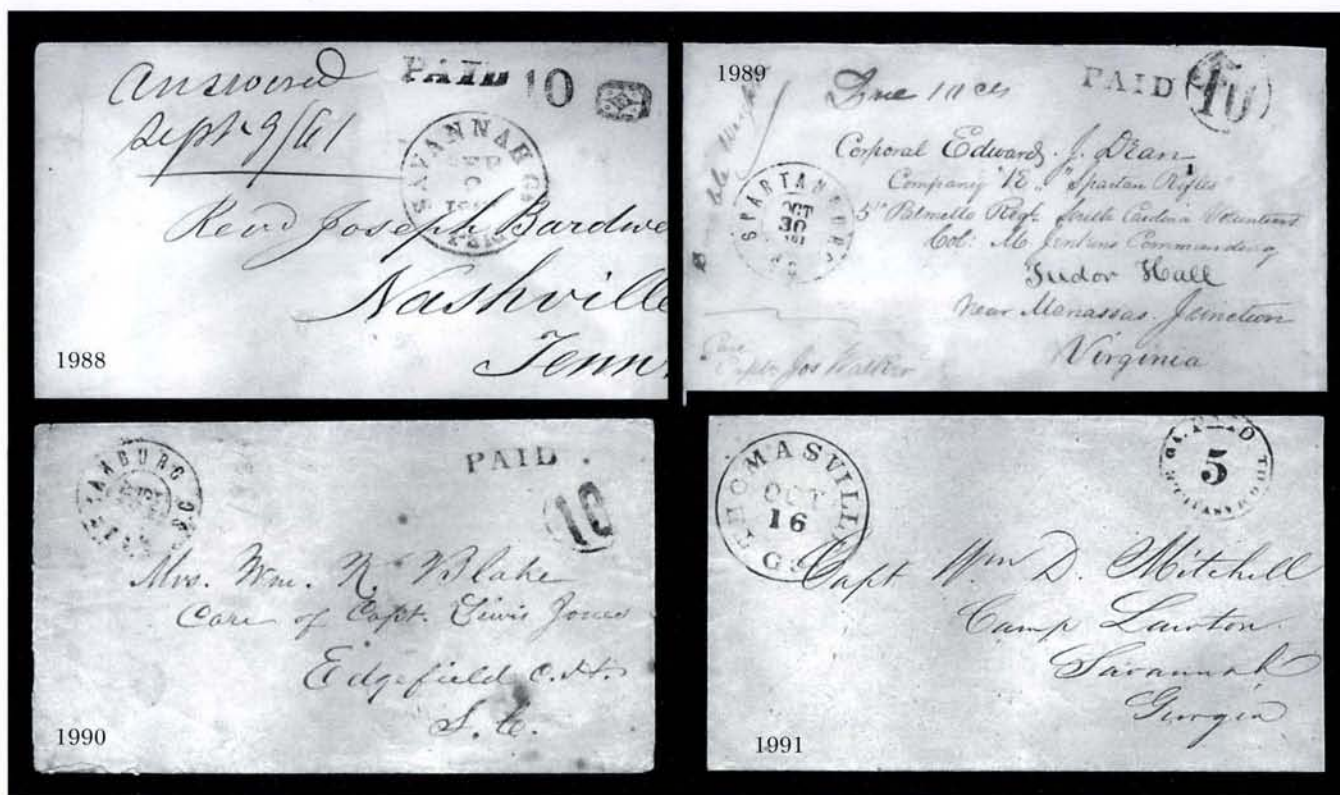 1988
Answered
Sept 9/61
PAID 10
SAVANNAH Ga.
SEP
Revd Joseph Bardwe
Nashville
Tenn
1989
Due 10 cts
PAID 10
SPARTANBURG
OCT
30
Corporal Edward J. Dean
Company "K" "Spartan Rifles"
5th Palmetto Regt South Carolina Volunteers
Col: M Jenkins Commanding
Tudor Hall
Near Manassas Junction
Virginia
Care
Capt Jos Walker
1990
HAMBURG S.C.
PAID
10
Mrs. Wm. K. Blake
Care of Capt. Lewis Jones
Edgefield C.H.
S.C.
1991
THOMASVILLE
OCT
16
Ga
PAID
5
Capt Wm D. Mitchell
Camp Lawton
Savannah
Georgia